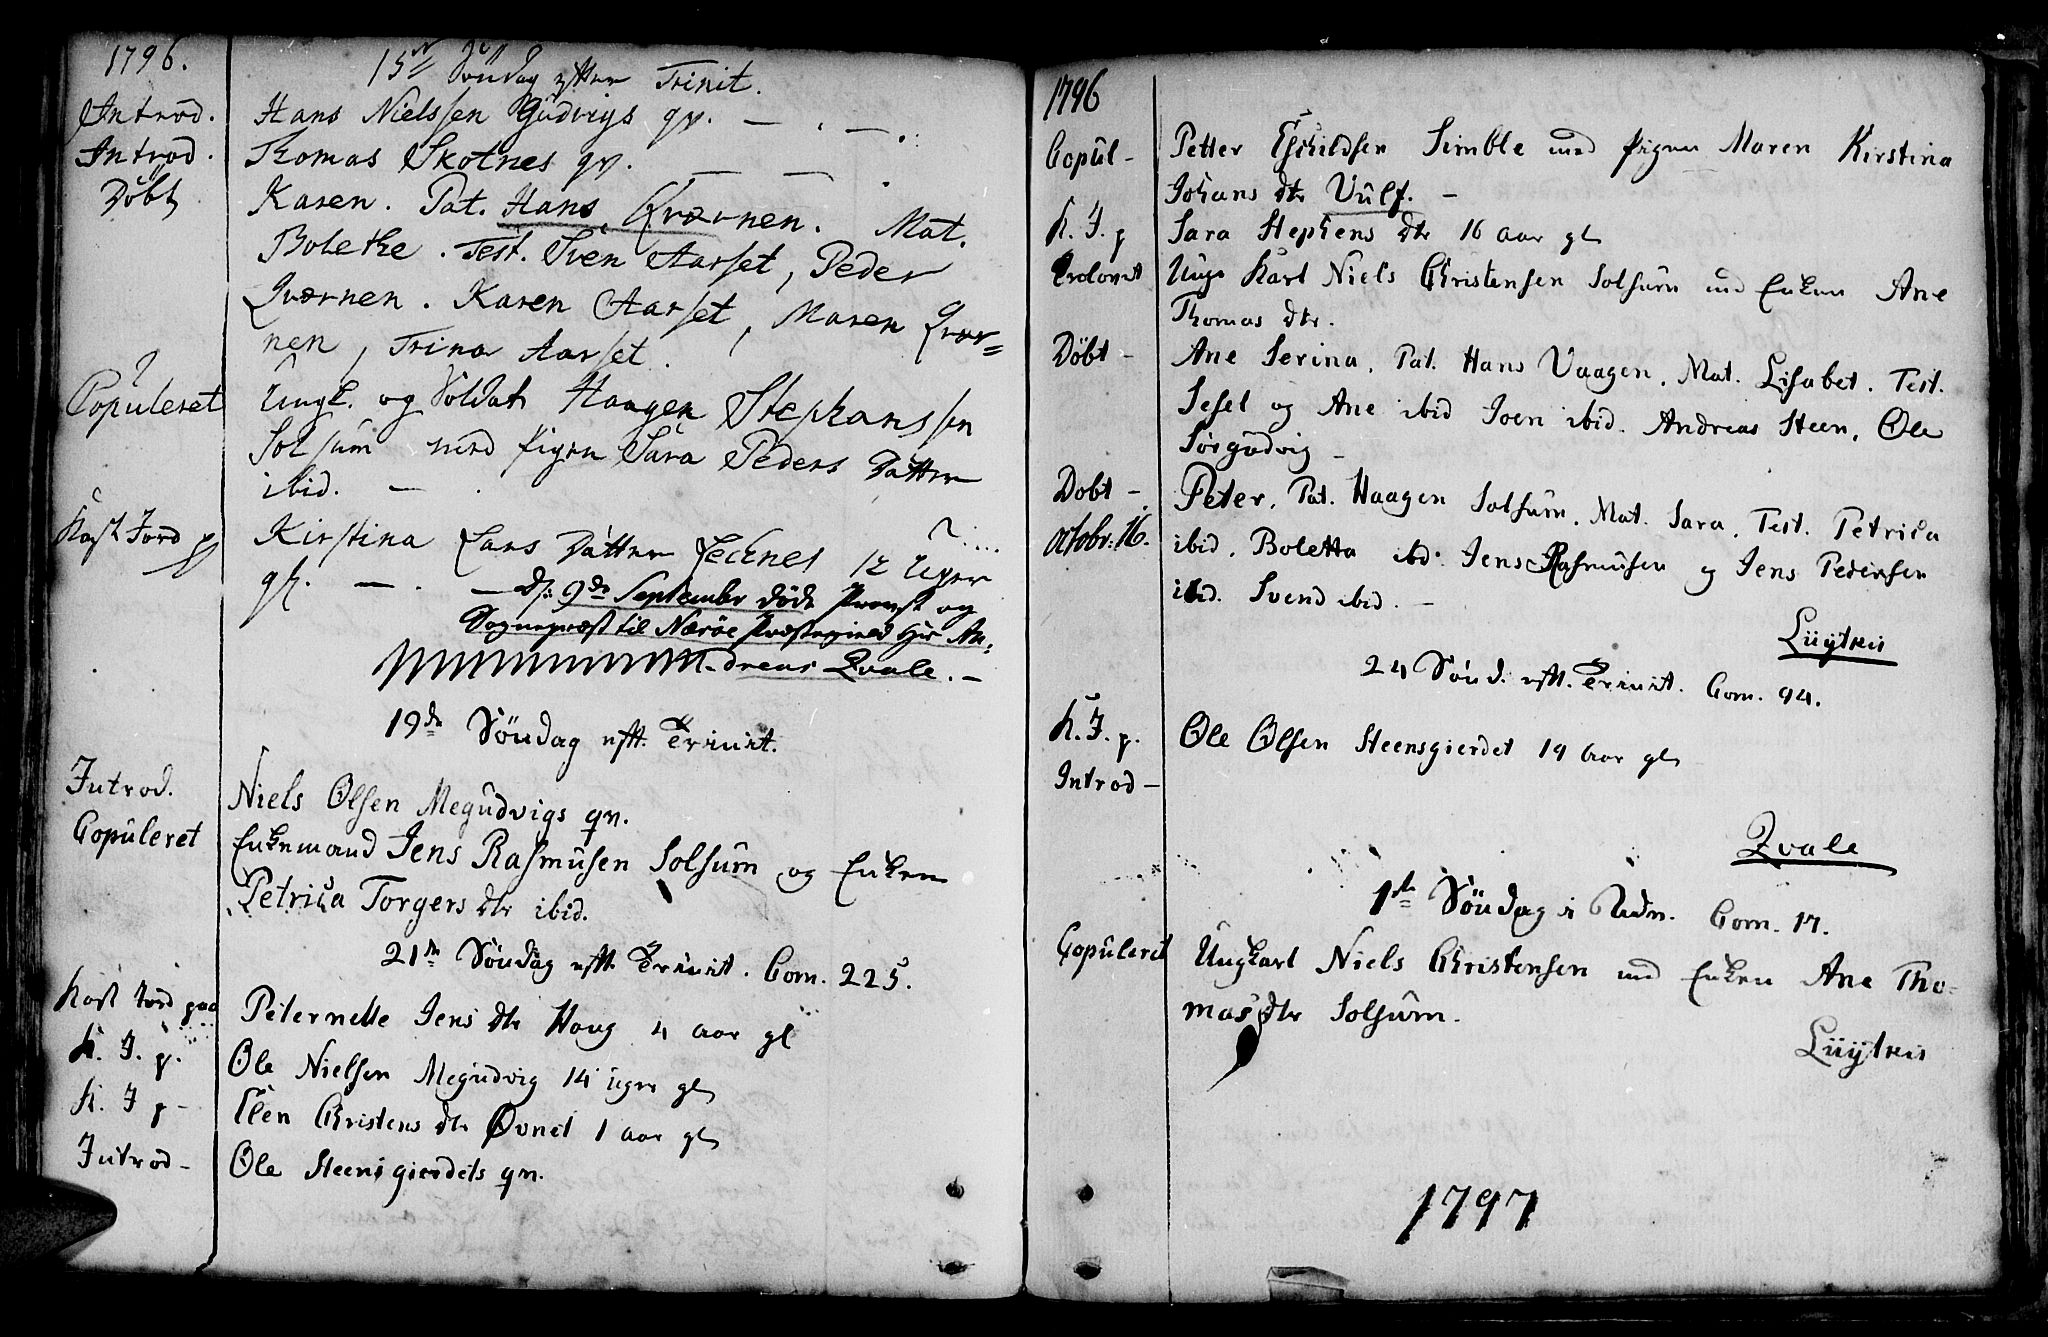 1796.
15de Söndag efter Trinit.
Introd. Hans Nielssen Gudvigs qv. — . — .
Introd. Thomas Skotnes qv. — — .
Döbt Karen. Pat. Hans Qværnen. Mat.
Bolethe. Test. Sven Aarset, Peder
Qværnen. Karen Aarset, Maren Qvær=
nen, Trina Aarset.
Copuleret Ungk. og Soldat Haagen Stephanssen
Solsum med Pigen Sara Peders Datter
ibid. — .
Kast Jord p Kirstina Lars Datter 12 Uger
gl. — . — D: 9de September döde Provst og
Sognepræst til Næröe Præstegield Hr An-
dreas Qvale. —
19de Söndag eft. Trinit.
Introd. Niels Olsen Megudvigs qv.
Copuleret Enkemand Jens Rasmusen Solsum og Enken
Petrica Torgers dtr ibid.
21de Söndag eft. Trinit. Com. 225.
Kast Jord paa Peternelle Jens dtr Houg 4 aar gl
K. J. p. Ole Nielsen Megudvig 14 uger gl
K. J. p — Elen Christens dtr Øvnet 1 aar gl
Introd — Ole Steensgierdets qv.
1796
Copul — Petter Eskildsen Simble med Pigen Maren Kirstina
Johans dtr Vulf. —
K. J. p Sara Stephens dtr 16 aar gl
Trolovet Unge Karl Niels Christensen Solsum med Enken Ane
Thomas dtr.
Döbt — Ane Serina, Pat. Hans Vaagen, Mat. Lisabet. Test.
Sesel og Ane ibid Joen ibid. Andreas Steen, Ole
Sörgudvig —
Döbt — Peter, Pat. Haagen Solsum, Mat. Sara, Test. Petrica
Octobr: 16. ibid, Boletta ibd. Jens Rasmusen og Jens Pedersen
ibid. Svend ibid. —
24 Sönd. eft. Trinit. Com. 94.
K. J. p. Ole Olsen Steensgierdet 19 aar gl
Introd —
Qvale
1ste Söndag i Adv. Com. 17.
Copuleret Ungkarl Niels Christensen med Enken Ane Tho-
mas dtr Solsum.
1797